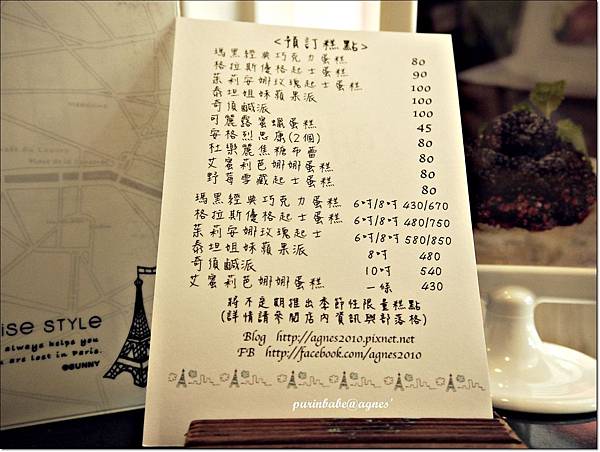 <預訂糕點>
瑪黑經典巧克力蛋糕 80
格拉斯優格起士蛋糕 90
茱莉安娜玫瑰起士蛋糕 100
泰坦姐妹蘋果派 100
奇頂鹹派 100
可麗露蜜蠟蛋糕 45
安格烈思康(2個) 80
杜樂麗焦糖布蕾 80
艾蜜莉芭娜娜蛋糕 80
野莓雪藏起士蛋糕 80
瑪黑經典巧克力蛋糕 6吋/8吋 430/670
格拉斯優格起士蛋糕 6吋/8吋 480/750
茱莉安娜玫瑰起士 6吋/8吋 580/850
泰坦姐妹蘋果派 8吋 480
奇頂鹹派 10吋 540
艾蜜莉芭娜娜蛋糕 一條 430
將不定期推出季節性限量糕點
(詳情請參閱店內資訊與部落格)
Blog http://agnes2010.pixnet.net
FB http://facebook.com/agnes2010
purinbabe@agnes'
ise STYLE
always helps you
are lost in Paris.
©SUNNY